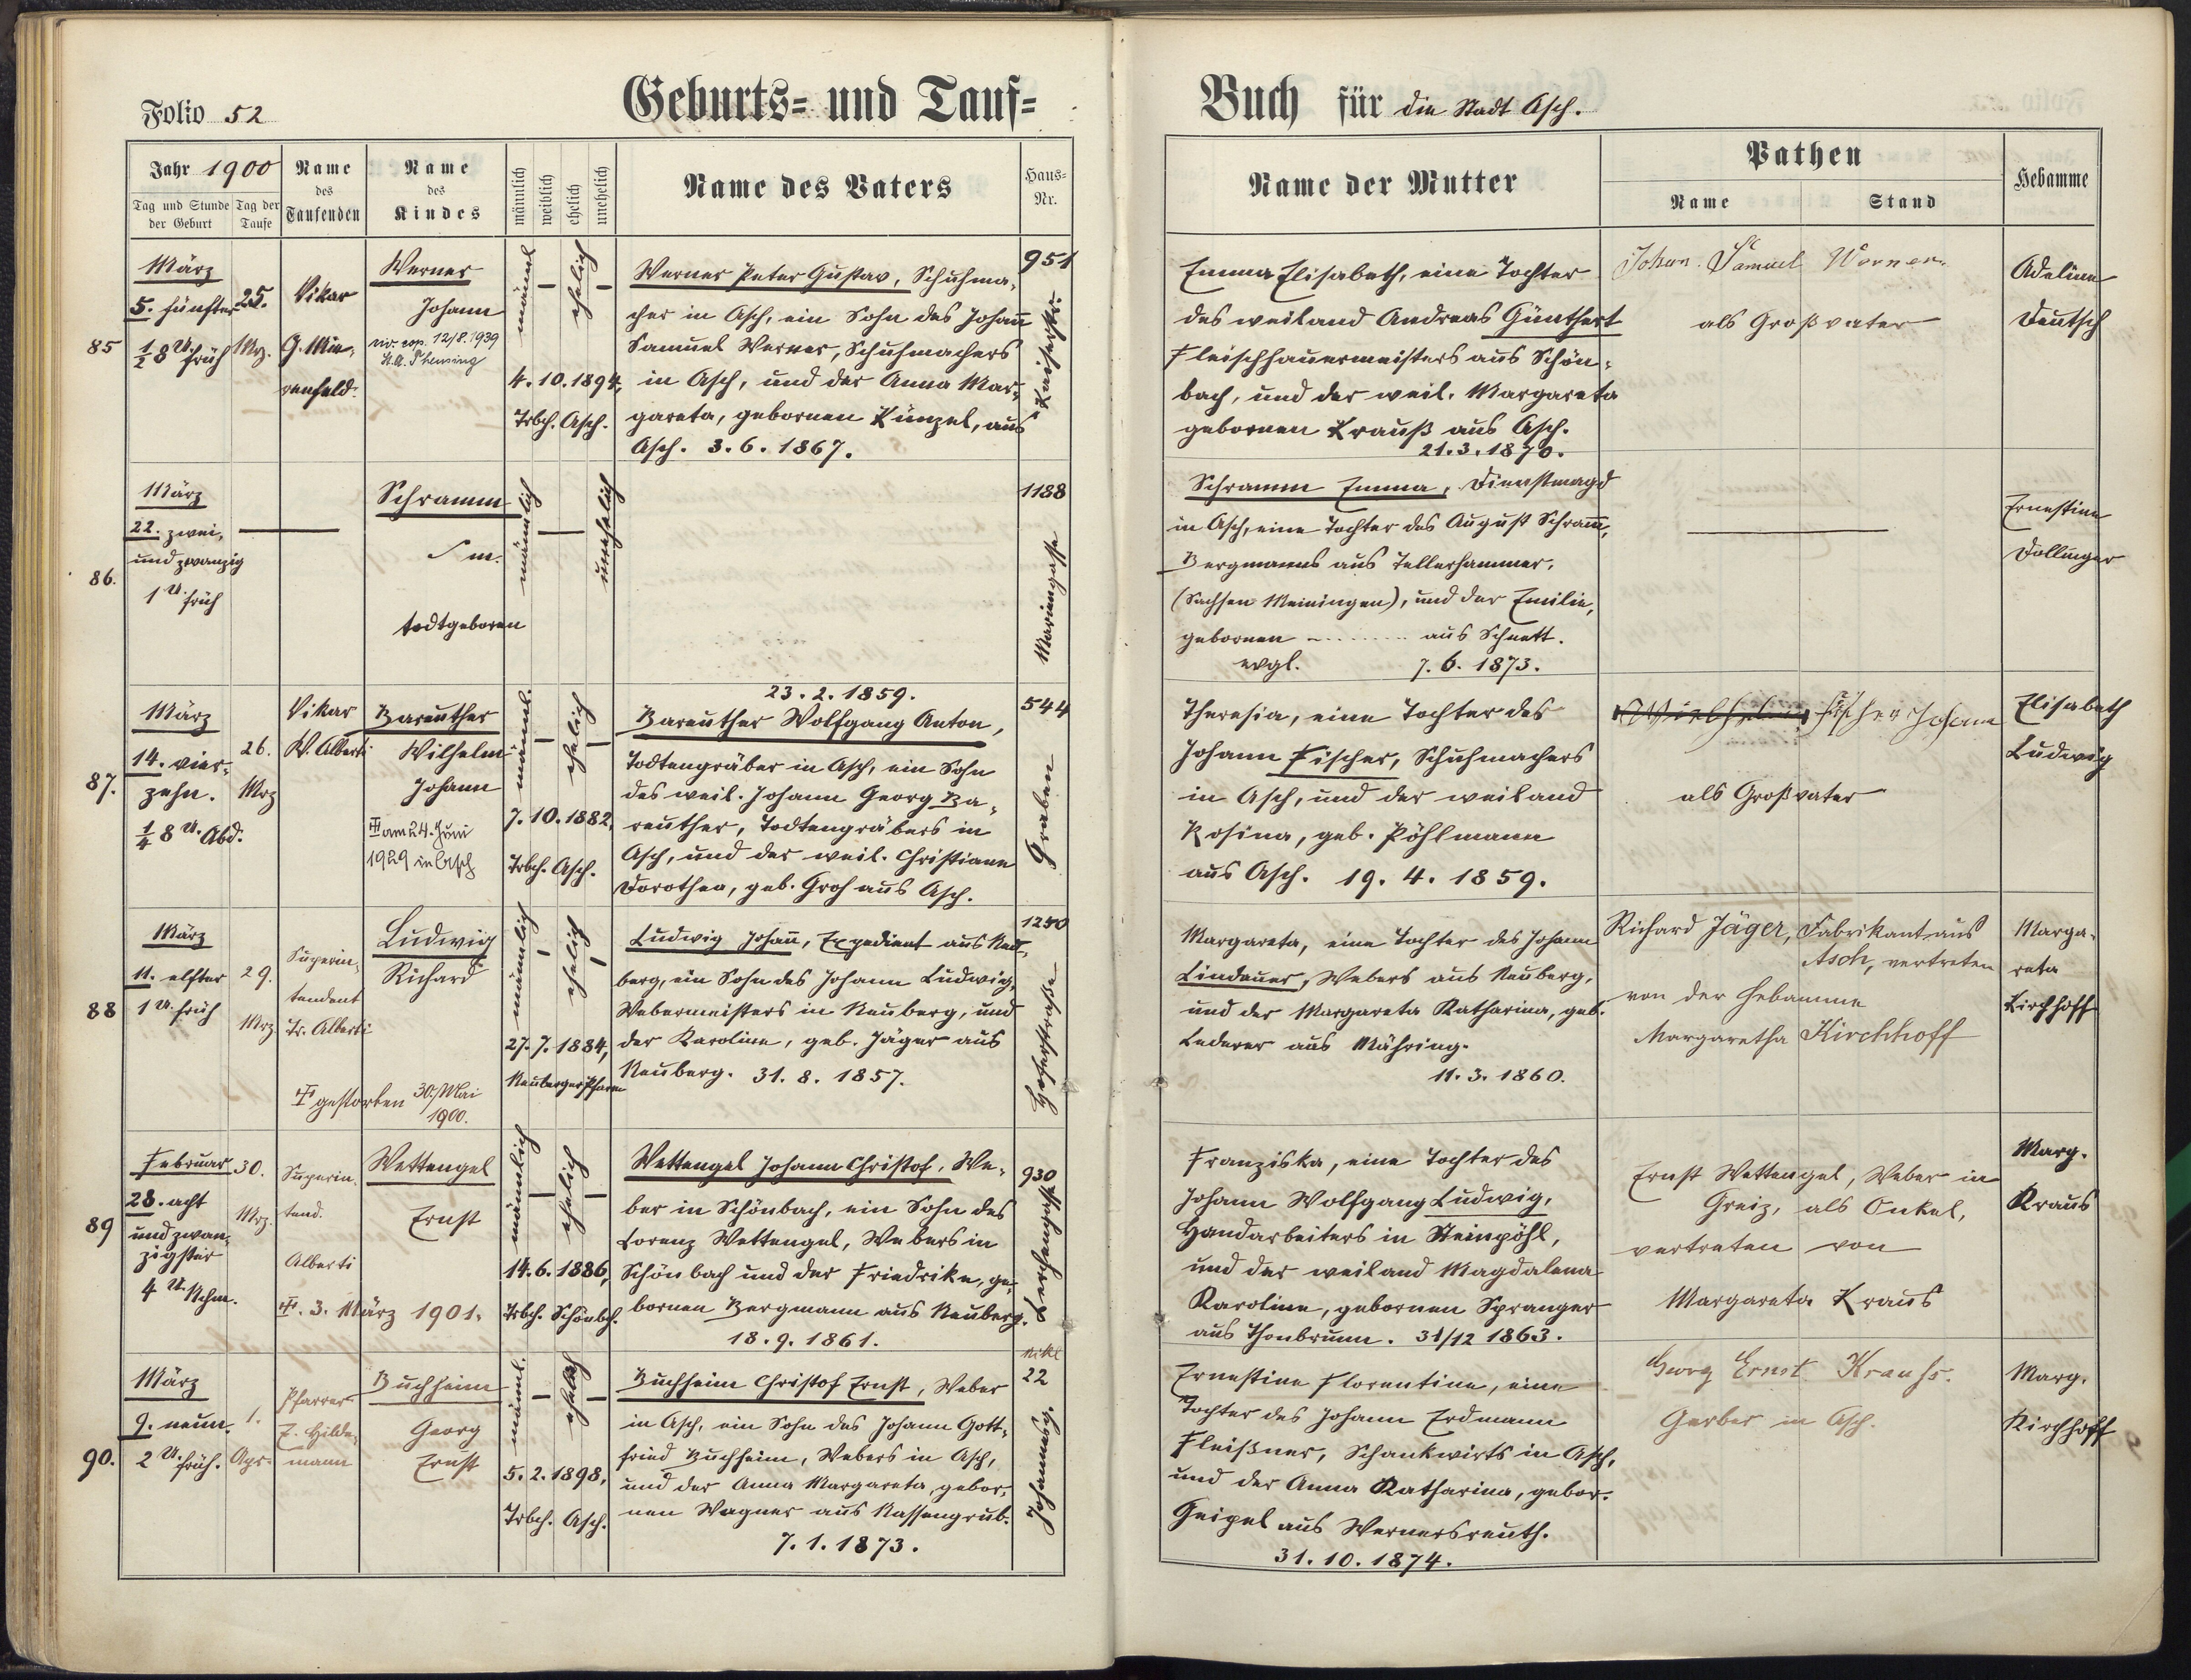 Folio 52
Geburts= und Tauf=
Jahr 1900
Tag und Stunde der Geburt
Tag der Taufe
Name des Taufenden
Name des Kindes
männlich
weiblich
ehelich
unehelich
Name des Vaters
Haus-Nr.
Buch für die Stadt Asch.
Name der Mutter
Pathen
Name
Stand
Hebamme
85
März
5. fünfter
½ 8 U. früh
25.
Mrz.
Vikar
G. Mie-
renfeld.
Werner
Johann
12/8. 1939
männl.
—
ehelich
—
4. 10. 1894,
Trbch. Asch.
Werner Peter Gustav, Schuhma-
cher in Asch, ein Sohn des Johann
Samuel Werner, Schuhmachers
in Asch, und der Anna Mar-
gareta, gebornen Künzel, aus
Asch. 3. 6. 1867.
951
Kaiserstr.
Emma Elisabeth, eine Tochter
des weiland Andreas Günthert
Fleischhauermeisters aus Schön-
bach, und der weil. Margareta
gebornen Krauß aus Asch.
21. 3. 1870.
Johann Samuel Werner
als Großvater
Adeline
Deutsch
86.
März
22. zwei-
und zwanzig
1 U. früh
—
Schramm
m.
todtgeboren
männlich
—
unehelich
1188
Mariengasse
Schramm Emma, Dienstmagd
in Asch, eine Tochter des August Schramm,
Bergmanns aus Tellerhammer,
(Sachsen Meiningen), und der Emilie,
gebornen - ........ aus Schnett.
evgl. 7. 6. 1873.
—
Ernestine
Dollinger
87.
März
14. vier-
zehn.
¼ 8 U. Abd.
26.
Mrz
Vikar
W. Alberti
Bareuther
Wilhelm
Johann
am 24. Juni
1929 in Asch
männl.
—
ehelich
—
7. 10. 1882,
Trbch. Asch.
23. 2. 1859.
Bareuther Wolfgang Anton,
Todtengräber in Asch, ein Sohn
des weil. Johann Georg Ba-
reuther, Todtengräbers in
Asch, und der weil. Christiane
Dorothea, geb. Groh aus Asch.
544
Graben
Theresia, eine Tochter des
Johann Fischer, Schuhmachers
in Asch, und der weiland
Rosina, geb. Pöhlmann
aus Asch. 19. 4. 1859.
Wilhelm Fischer Johann
als Großvater
Elisabeth
Ludwig
88
März
11. elfter
1 U. früh
29.
Mrz
Superin-
tendent
Tr. Alberti
Ludwig
Richard
gestorben 30. Mai
1900.
männlich
—
ehelich
—
27. 7. 1884,
Neuberger Pfarre
Ludwig Johann, Expedient aus Neu-
berg, ein Sohn des Johann Ludwig,
Webermeisters in Neuberg, und
der Karoline, geb. Jäger aus
Neuberg. 31. 8. 1857.
1250
Hoferstraße
Margareta, eine Tochter des Johann
Lindauer, Webers aus Neuberg,
und der Margareta Katharina, geb.
Lederer aus Mähring.
11. 3. 1860.
Richard Jäger, Fabrikant aus
Asch, vertreten
von der Hebamme
Margaretha Kirchhoff
Marga-
reta
Kirchhoff
89
Februar
28. acht
und zwan-
zigster
4 U. Nchm.
30.
Mrz.
Superin-
tend.
Alberti
Wettengel
Ernst
3. März 1901.
männlich
—
ehelich
—
14. 6. 1886,
Trbch. Schönbch.
Wettengel Johann Christof, We-
ber in Schönbach, ein Sohn des
Lorenz Wettengel, Webers in
Schönbach und der Friedrike, ge-
bornen Bergmann aus Neuberg.
18. 9. 1861.
930
Lerchengasse
Franziska, eine Tochter des
Johann Wolfgang Ludwig,
Handarbeiters in Steinpöhl,
und der weiland Magdalena
Karoline, gebornen Spranger
aus Thonbrunn. 31/12 1863.
Ernst Wettengel, Weber in
Greiz, als Onkel,
vertreten von
Margareta Kraus
Marg.
Kraus
90.
März
9. neun.
2 U. früh.
1.
Apr.
Pfarrer
E. Hilde-
mann
Buchheim
Georg
Ernst
männl.
—
ehelich
—
5. 2. 1898,
Trbch. Asch.
Buchheim Christof Ernst, Weber
in Asch, ein Sohn des Johann Gott-
fried Buchheim, Webers in Asch,
und der Anna Margareta, gebor-
nen Wagner aus Nassengrub.
7. 1. 1873.
Nikl
22
Johannesg.
Ernestine Florentine, eine
Tochter des Johann Erdmann
Fleißner, Schankwirts in Asch,
und der Anna Katharina, gebor.
Geipel aus Wernersreuth.
31. 10. 1874.
Georg Ernst Krauss.
Gerber in Asch.
Marg.
Kirchhoff